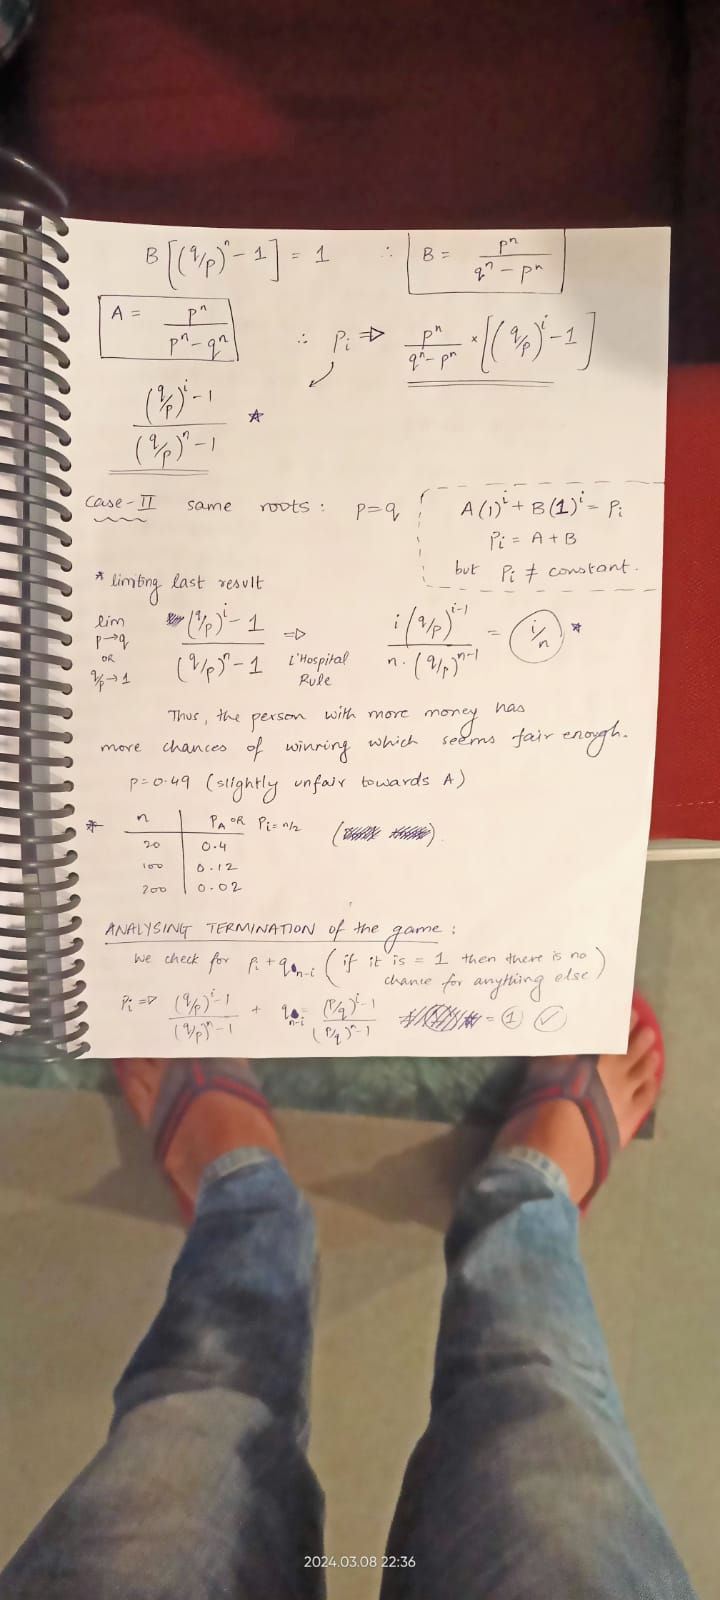 B[(q/p)^n - 1] = 1 ∴ B = p^n / (q^n - p^n)
A = p^n / (p^n - q^n) ∴ Pi ⇒ p^n / (q^n - p^n) × [(q/p)^i - 1]
((q/p)^i - 1) / ((q/p)^n - 1) ☆
Case-II same roots: p=q
A(1)^i + B(1)^i = Pi
Pi = A + B
but Pi ≠ constant.
* limiting last result
lim p→q OR q/p→1 ((q/p)^i - 1) / ((q/p)^n - 1) ⇒ L'Hospital Rule i(q/p)^(i-1) / n.(q/p)^(n-1) = i/n *
Thus, the person with more money has
more chances of winning which seems fair enough.
p=0.49 (slightly unfair towards A)
* n | PA OR Pi=n/2
20 | 0.4
100 | 0.12
200 | 0.02
ANALYSING TERMINATION of the game:
We check for Pi + q n-i (if it is = 1 then there is no
chance for anything else)
Pi ⇒ ((q/p)^i - 1) / ((q/p)^n - 1) + q n-i = ((p/q)^i - 1) / ((p/q)^n - 1) = 1 ✓
2024.03.08 22:36